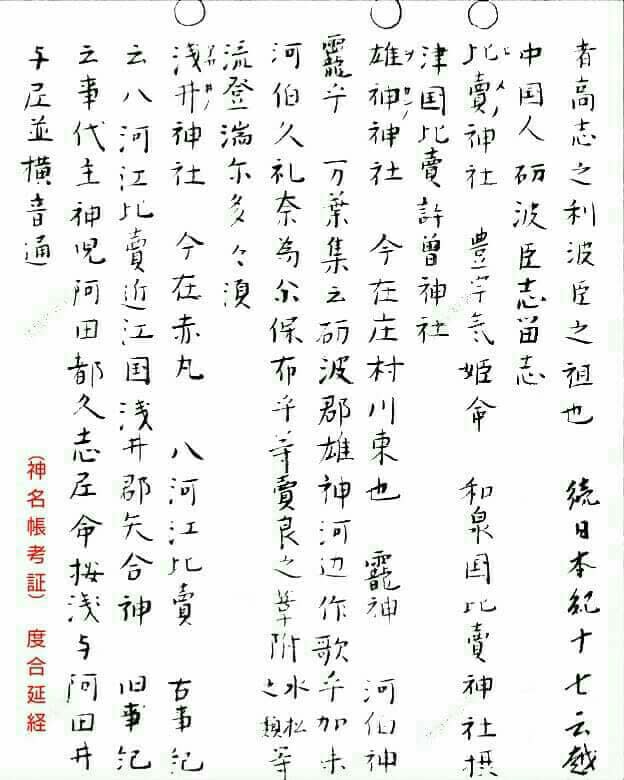 者高志之利波臣之祖也　続日本紀十七云越
中国人砺波臣志留志
比賣神社　豊宇気姫命　和泉国比賣神社摂
津国比賣許曽神社
雄神神社　今在庄村川東也　龗神　河伯神
龗乎　万葉集云砺波郡雄神河辺作歌乎加未
河伯久礼奈為尓保布乎等賣良之葦附水松之類等
流登湍尓多々須
浅井神社　今在赤丸　八河江比賣　古事記
云八河江比賣近江国浅井郡矢合神　旧事記
云事代主神児阿田都久志尼命按浅与阿田井
与尼並横音通
（神名帳考証）　度合延経